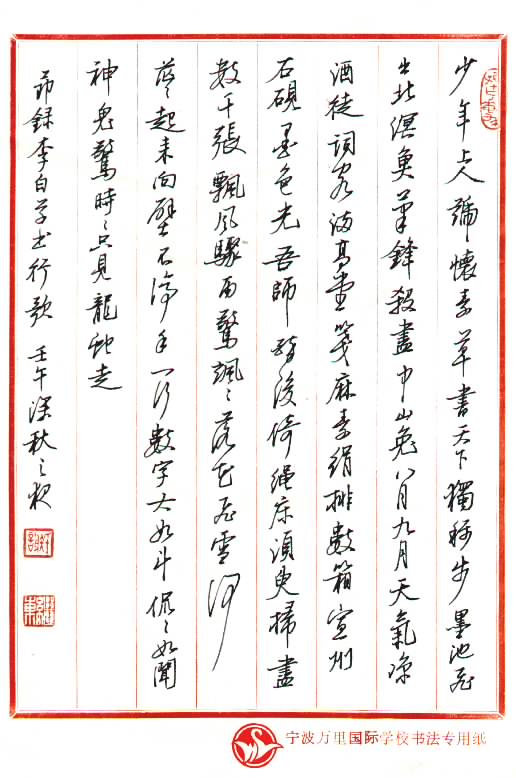 少年上人號懷素草書天下獨稱步墨池飛
出北溟魚筆鋒殺盡中山兔八月九月天氣涼
酒徒詞客滿高堂箋麻素絹排數箱宣州
石硯墨色光吾師醉後倚繩床須臾掃盡
數千張飄風驟雨驚颯々落花飛雪何
茫々起來向壁不停手一行數字大如斗怳々如聞
神鬼驚時々只見龍蛇走
節錄李白草書行歌 壬午深秋之夜
宁波万里国际学校书法专用纸